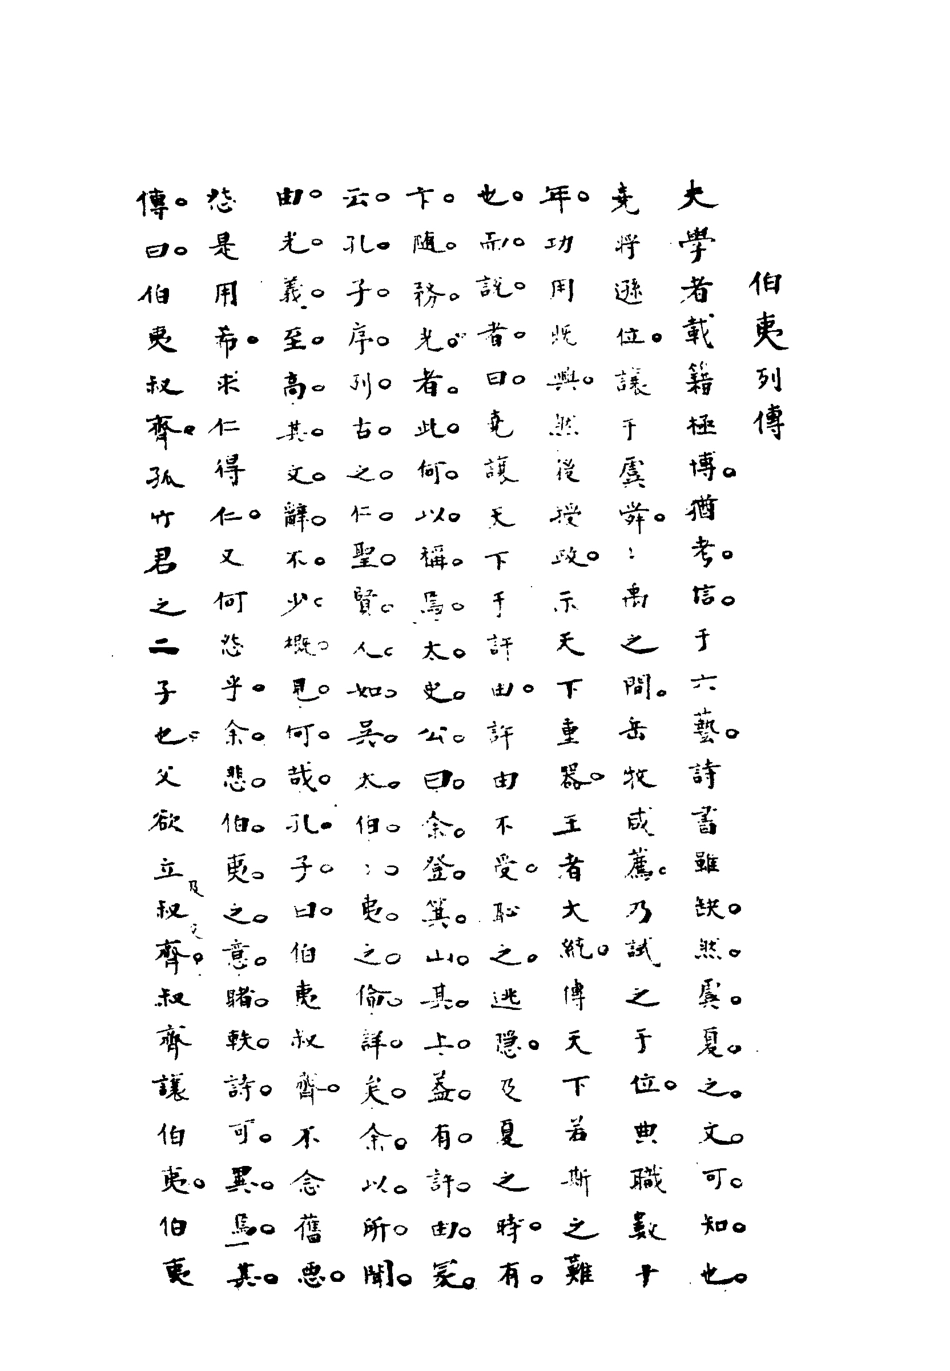 伯夷列傳
夫學者載籍極博。猶考。信。于六藝。詩書雖缺。然。虞。夏。之。文。可。知。也。
堯將遜位。讓于虞舜。〻禹之間。岳牧咸薦。乃試之于位。典職數十
年。功用既興。然後授政。示天下重器。王者大統。傳天下若斯之難
也。而。說。者。曰。堯讓天下于許由。許由不受。恥之。逃隱。及夏之時。有。
卞。随。務。光。者。此。何。以。稱。焉。太。史。公。曰。余。登。箕。山。其。上。蓋。有。許。由。冢。
云。孔。子。序。列。古。之。仁。聖。賢。人。如。吳。太。伯。〻。夷。之。倫。詳。矣。余。以。所。聞。
由。光。義。至。高。其。文。辭。不。少。概。見。何。哉。孔。子。曰。伯夷叔齊。不念舊惡。
怨是用希。求仁得仁。又何怨乎。余。悲。伯。夷。之。意。睹。軼。詩。可。異。焉。其。
傳。曰。伯夷叔齊。孤竹君之二子也。父欲立叔齊。及父叔齊讓伯夷。伯夷